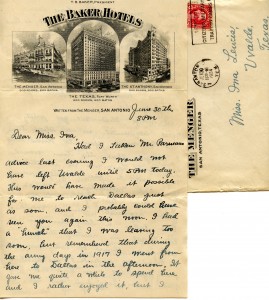 T. B. BAKER, PRESIDENT
THE BAKER HOTELS
THE MENGER, SAN ANTONIO
THE TEXAS, FORT WORTH
THE ST ANTHONY, SAN ANTONIO
WRITTEN FROM THE MENGER, SAN ANTONIO
June 30th
5 PM
Dear Miss Ina,
Had I taken Mr
advice last evening I would not
have left Uvalde until 5 PM today.
This would have made it possible
for me to reach Dallas just
as soon, and I probably could have
seen you again this noon. I had
a "hunch" that I was leaving too
soon, but remembered that during
the army days in 1917 I went from
here to Dallas in the afternoon. It
gave me quite a while to spend here
and I rather enjoyed it, but I
Miss Ina Lewis,
Uvalde,
Texas
THE MENGER
SAN ANTONIO, TEXAS